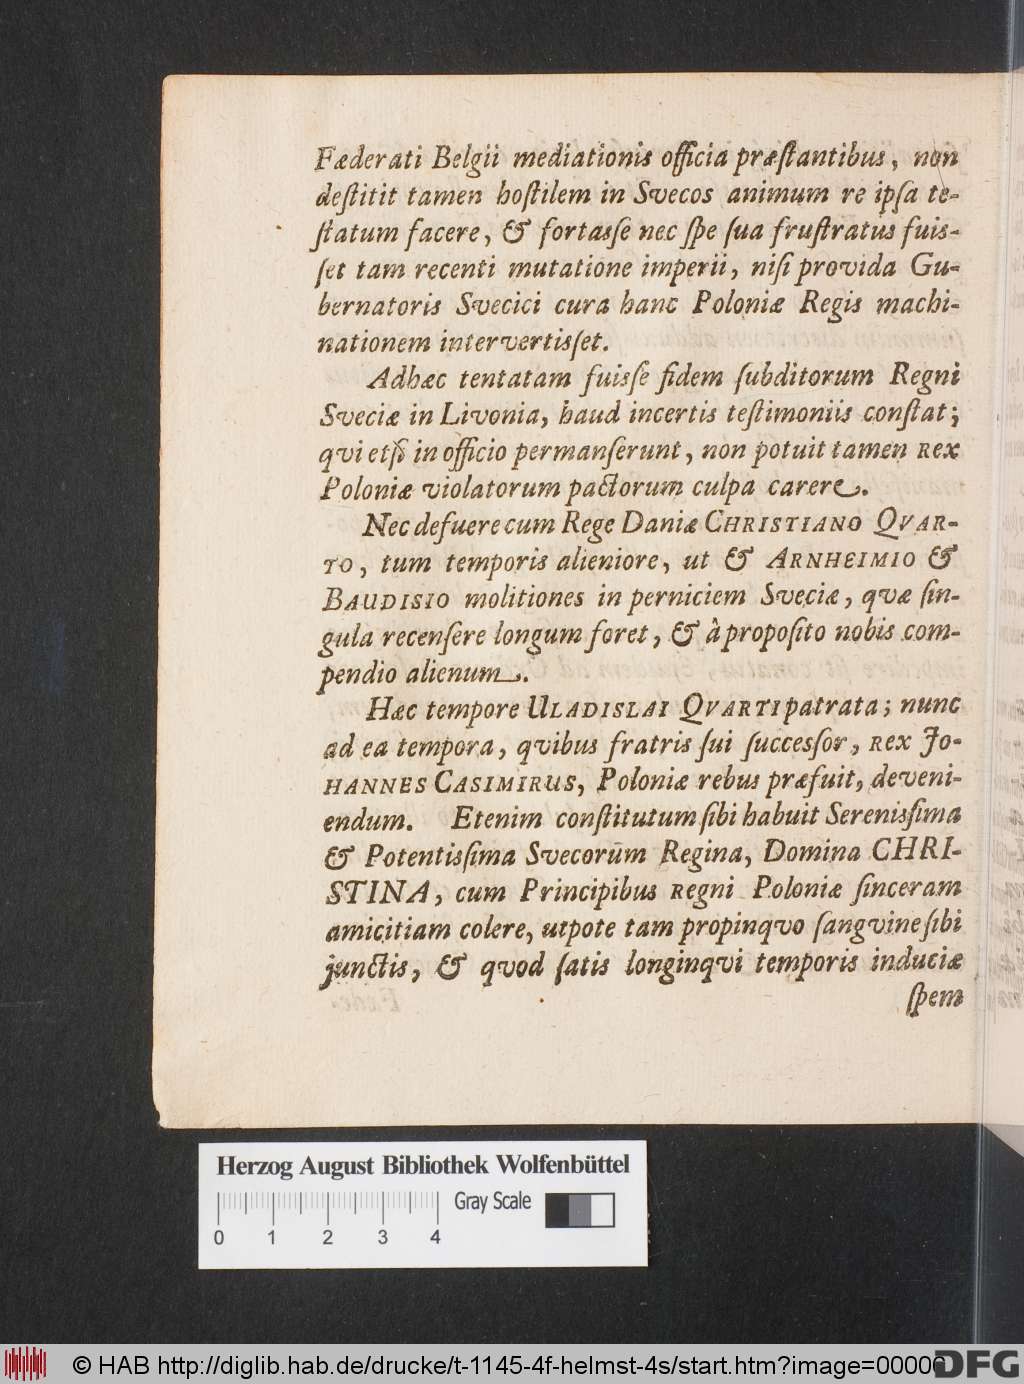 Fæderati Belgii mediationis officia præſtantibus, non
deſtitit tamen hoſtilem in Svecos animum re ipſa te-
ſtatum facere, & fortasſe nec ſpe ſua fruſtratus fuis-
ſet tam recenti mutatione imperii, niſi provida Gu-
bernatoris Svecici cura hanc Poloniæ Regis machi-
nationem intervertisſet.
Adhæc tentatam fuisſe fidem ſubditorum Regni
Sveciæ in Livonia, haud incertis teſtimoniis conſtat;
qvi etſi in officio permanſerunt, non potuit tamen Rex
Poloniæ violatorum pactorum culpa carere.
Nec defuere cum Rege Daniæ CHRISTIANO QVAR-
TO, tum temporis alieniore, ut & ARNHEIMIO &
BAUDISIO molitiones in perniciem Sveciæ, qvæ ſin-
gula recenſere longum foret, & à propoſito nobis com-
pendio alienum.
Hæc tempore ULADISLAI QVARTI patrata; nunc
ad ea tempora, qvibus fratris ſui ſuccesſor, Rex JO-
HANNES CASIMIRUS, Poloniæ rebus præfuit, deveni-
endum. Etenim conſtitutum ſibi habuit Serenisſima
& Potentisſima Svecorūm Regina, Domina CHRI-
STINA, cum Principibus Regni Poloniæ ſinceram
amicitiam colere, utpote tam propinqvo ſangvine ſibi
junctis, & qvod ſatis longinqvi temporis induciæ
ſpem
Herzog August Bibliothek Wolfenbüttel
Gray Scale
0 1 2 3 4
© HAB http://diglib.hab.de/drucke/t-1145-4f-helmst-4s/start.htm?image=00006
DFG